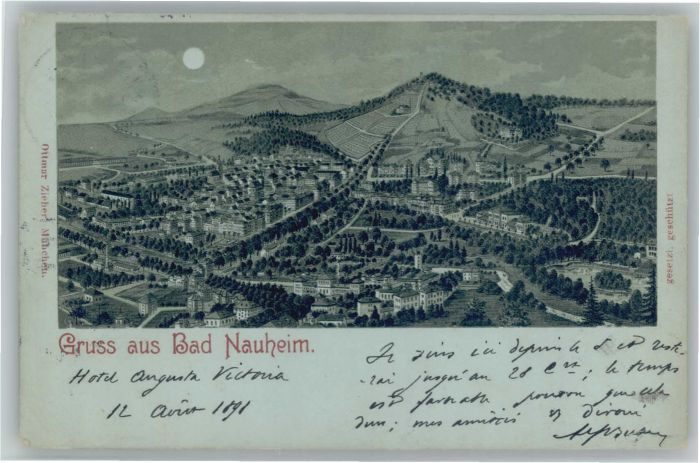 Ottmar Zieher, München.
gesetzl. geschützt
Gruss aus Bad Nauheim.
Hotel Augusta Victoria
12 Août 1898
Je suis ici depuis le 8 et reste-
rai jusqu'au 28 Ct; le temps
est favorable pourvu que cela
dure; mes amitiés